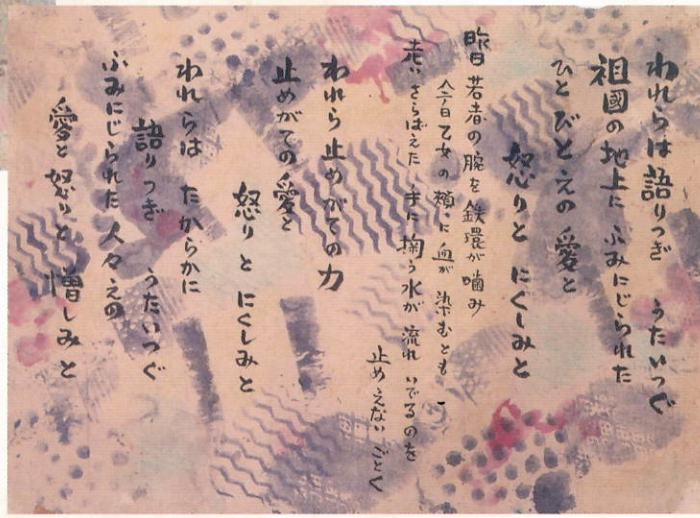 われらは語りつぎ うたいつぐ
祖國の地上に ふみにじられた
ひとびとえの 愛と
怒りと にくしみと
昨日 若者の腕を 鉄環が 噛み
今日 乙女の 頬に 血が 染むとも
老いさらばえた 手に 掬う水が 流れ いでるのを
止めえない ごとく
われら 止めがての力
止めがての 愛と
怒りと にくしみと
われらは たからかに
語りつぎ うたいつぐ
ふみにじられた 人々えの
愛と 怒りと 憎しみと